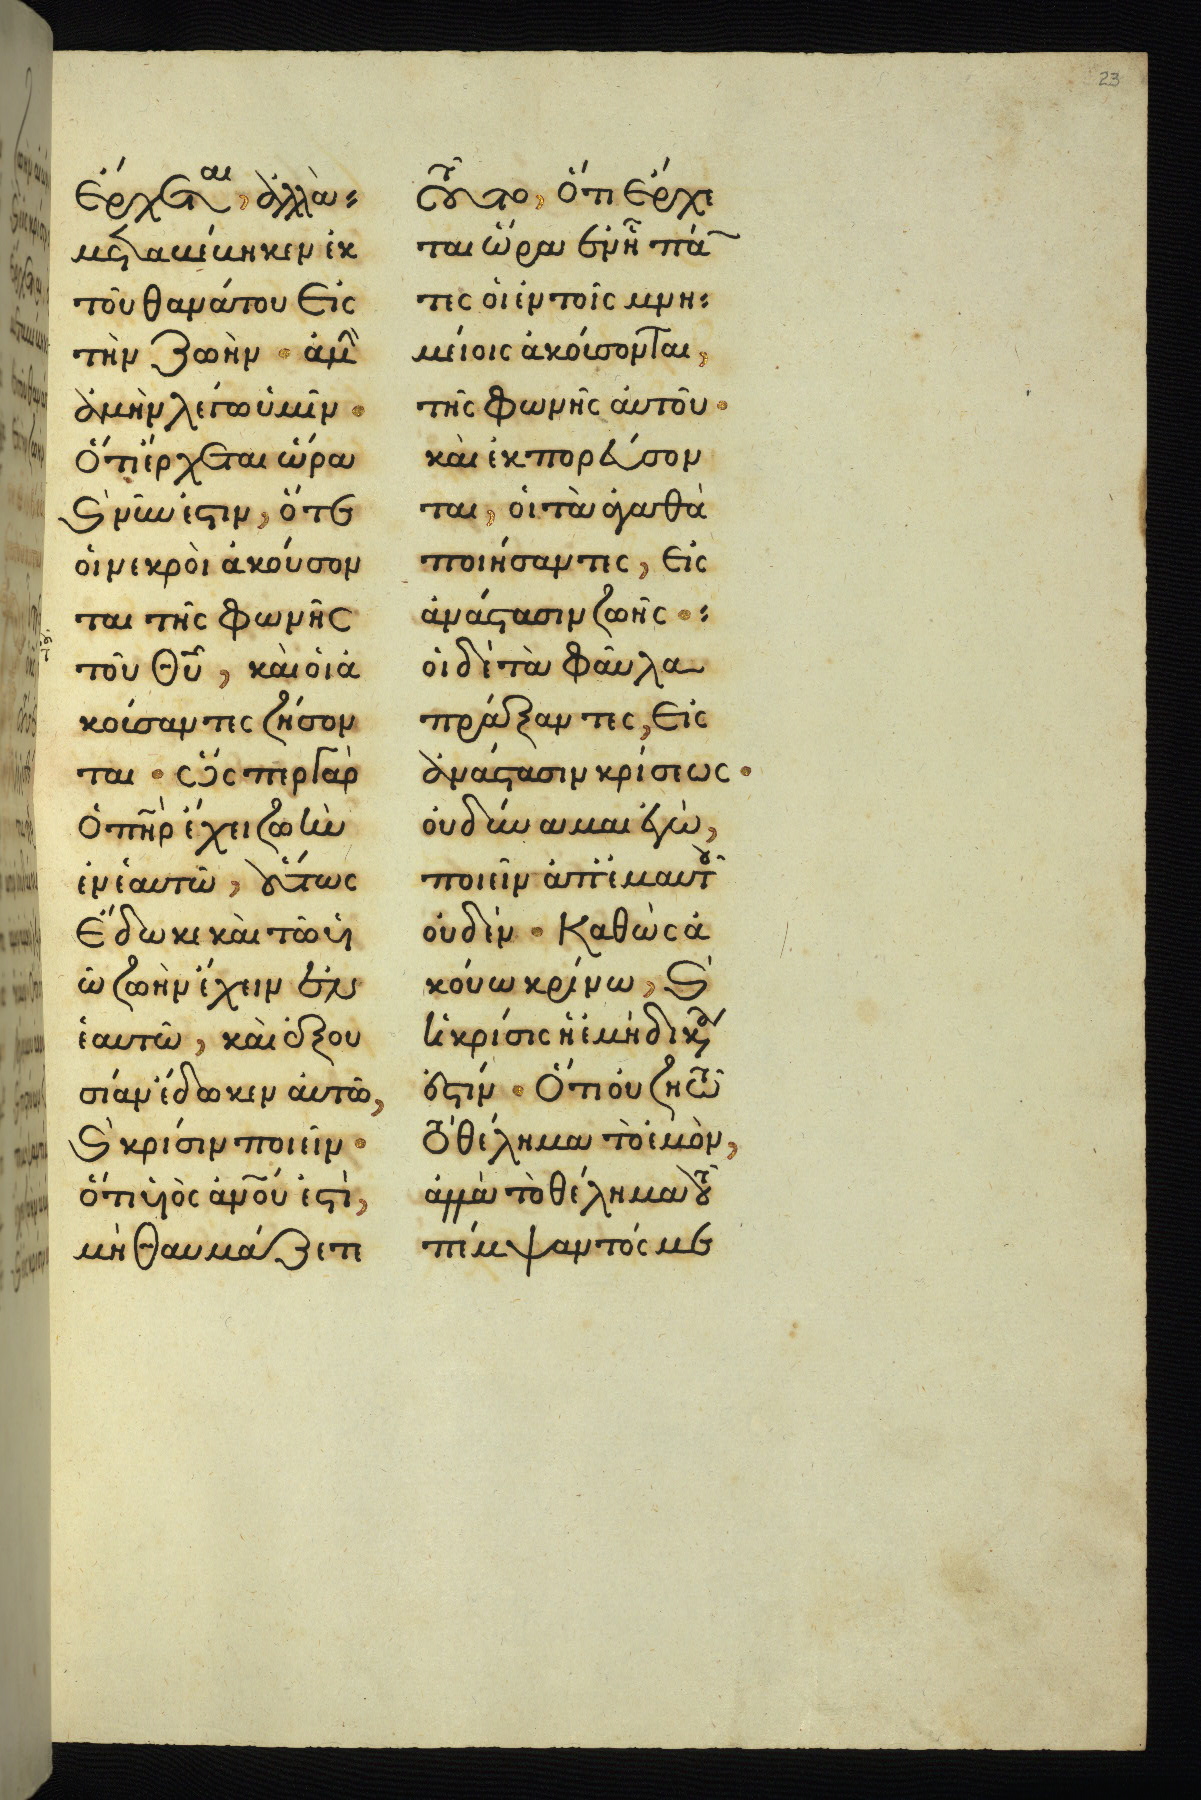 23
ἔρχεται, ἀλλὰ
μεταβέβηκεν ἐκ
τοῦ θανάτου εἰς
τὴν ζωὴν · ἀμὴ
ἀμὴν λέγω ὑμῖν ·
ὅτι ἔρχεται ὥρα
ϗ νῦν ἐστιν, ὅτε
οἱ νεκροὶ ἀκούσον
ται τῆς φωνῆς
τοῦ θῦ, καὶ οἱ ἀ
κούσαντες ζήσον
ται · ὥσπερ γὰρ
ὁ πηρ ἔχει ζωὴν
ἐν ἑαυτῶ, οὕτως
ἔδωκε καὶ τῶ υἱ
ῶ ζωὴν ἔχειν ἐν
ἑαυτῶ, καὶ ἐξου
σίαν ἔδωκεν αὐτῶ,
ϗ κρίσιν ποιεῖν ·
ὅτι υἱὸς ἀνου ἐστὶ,
μὴ θαυμάζετε
τοῦτο, ὅτι ἔρχε
ται ὥρα ἐν ἧ πά
τες οἱ ἐν τοῖς μνη
μείοις ἀκούσονται,
τῆς φωνῆς αὐτοῦ ·
καὶ ἐκπορεύσον
ται, οἱ τὰ ἀγαθὰ
ποιήσαντες, εἰς
ἀνάστασιν ζωῆς ·
οἱ δὲ τὰ φαῦλα
πράξαντες, εἰς
ἀνάστασιν κρίσεως ·
οὐ δύναμαι ἐγὼ,
ποιεῖν ἀπ' ἐμαυτοῦ
οὐδέν · Καθὼς ἀ
κούω κρίνω, ϗ
ἡ κρίσις ἡ ἐμὴ δικαία
ἐστίν · Ὅτι οὐ ζητῶ
τὸ θέλημα τὸ ἐμὸν,
ἀλλὰ τὸ θέλημα τοῦ
πέμψαντός με